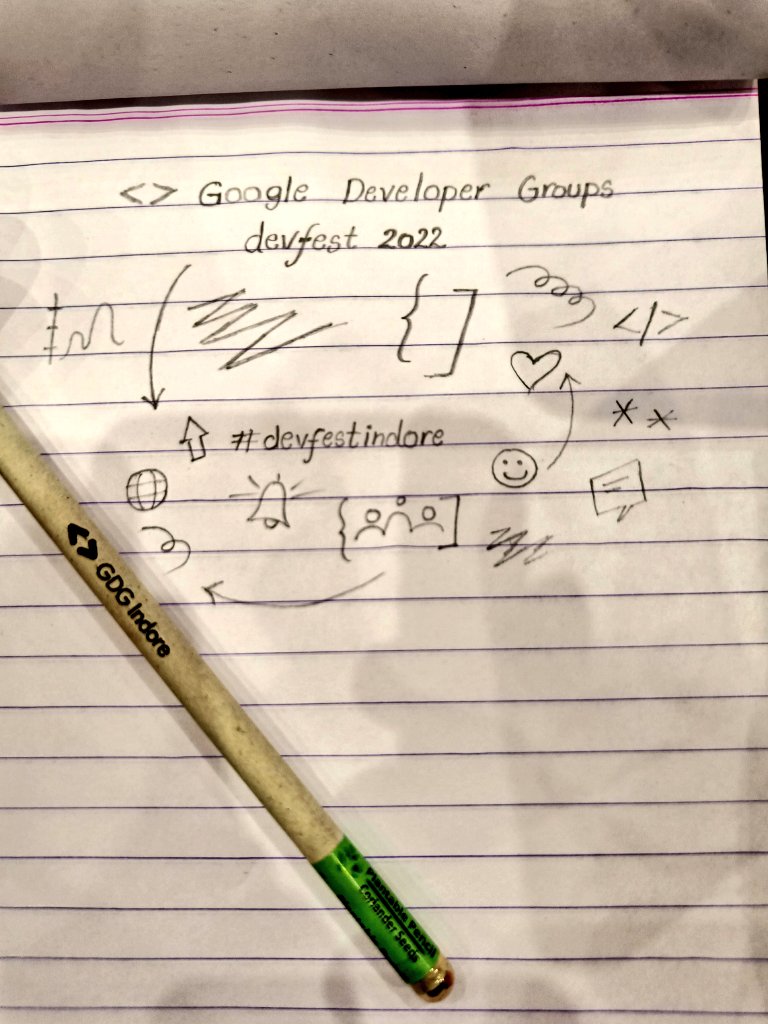 <> Google Developer Groups
devfest 2022
{ ]
</>
* *
#devfestindore
{ ]
<> GDG Indore
Plantable Pencil
Coriander Seeds